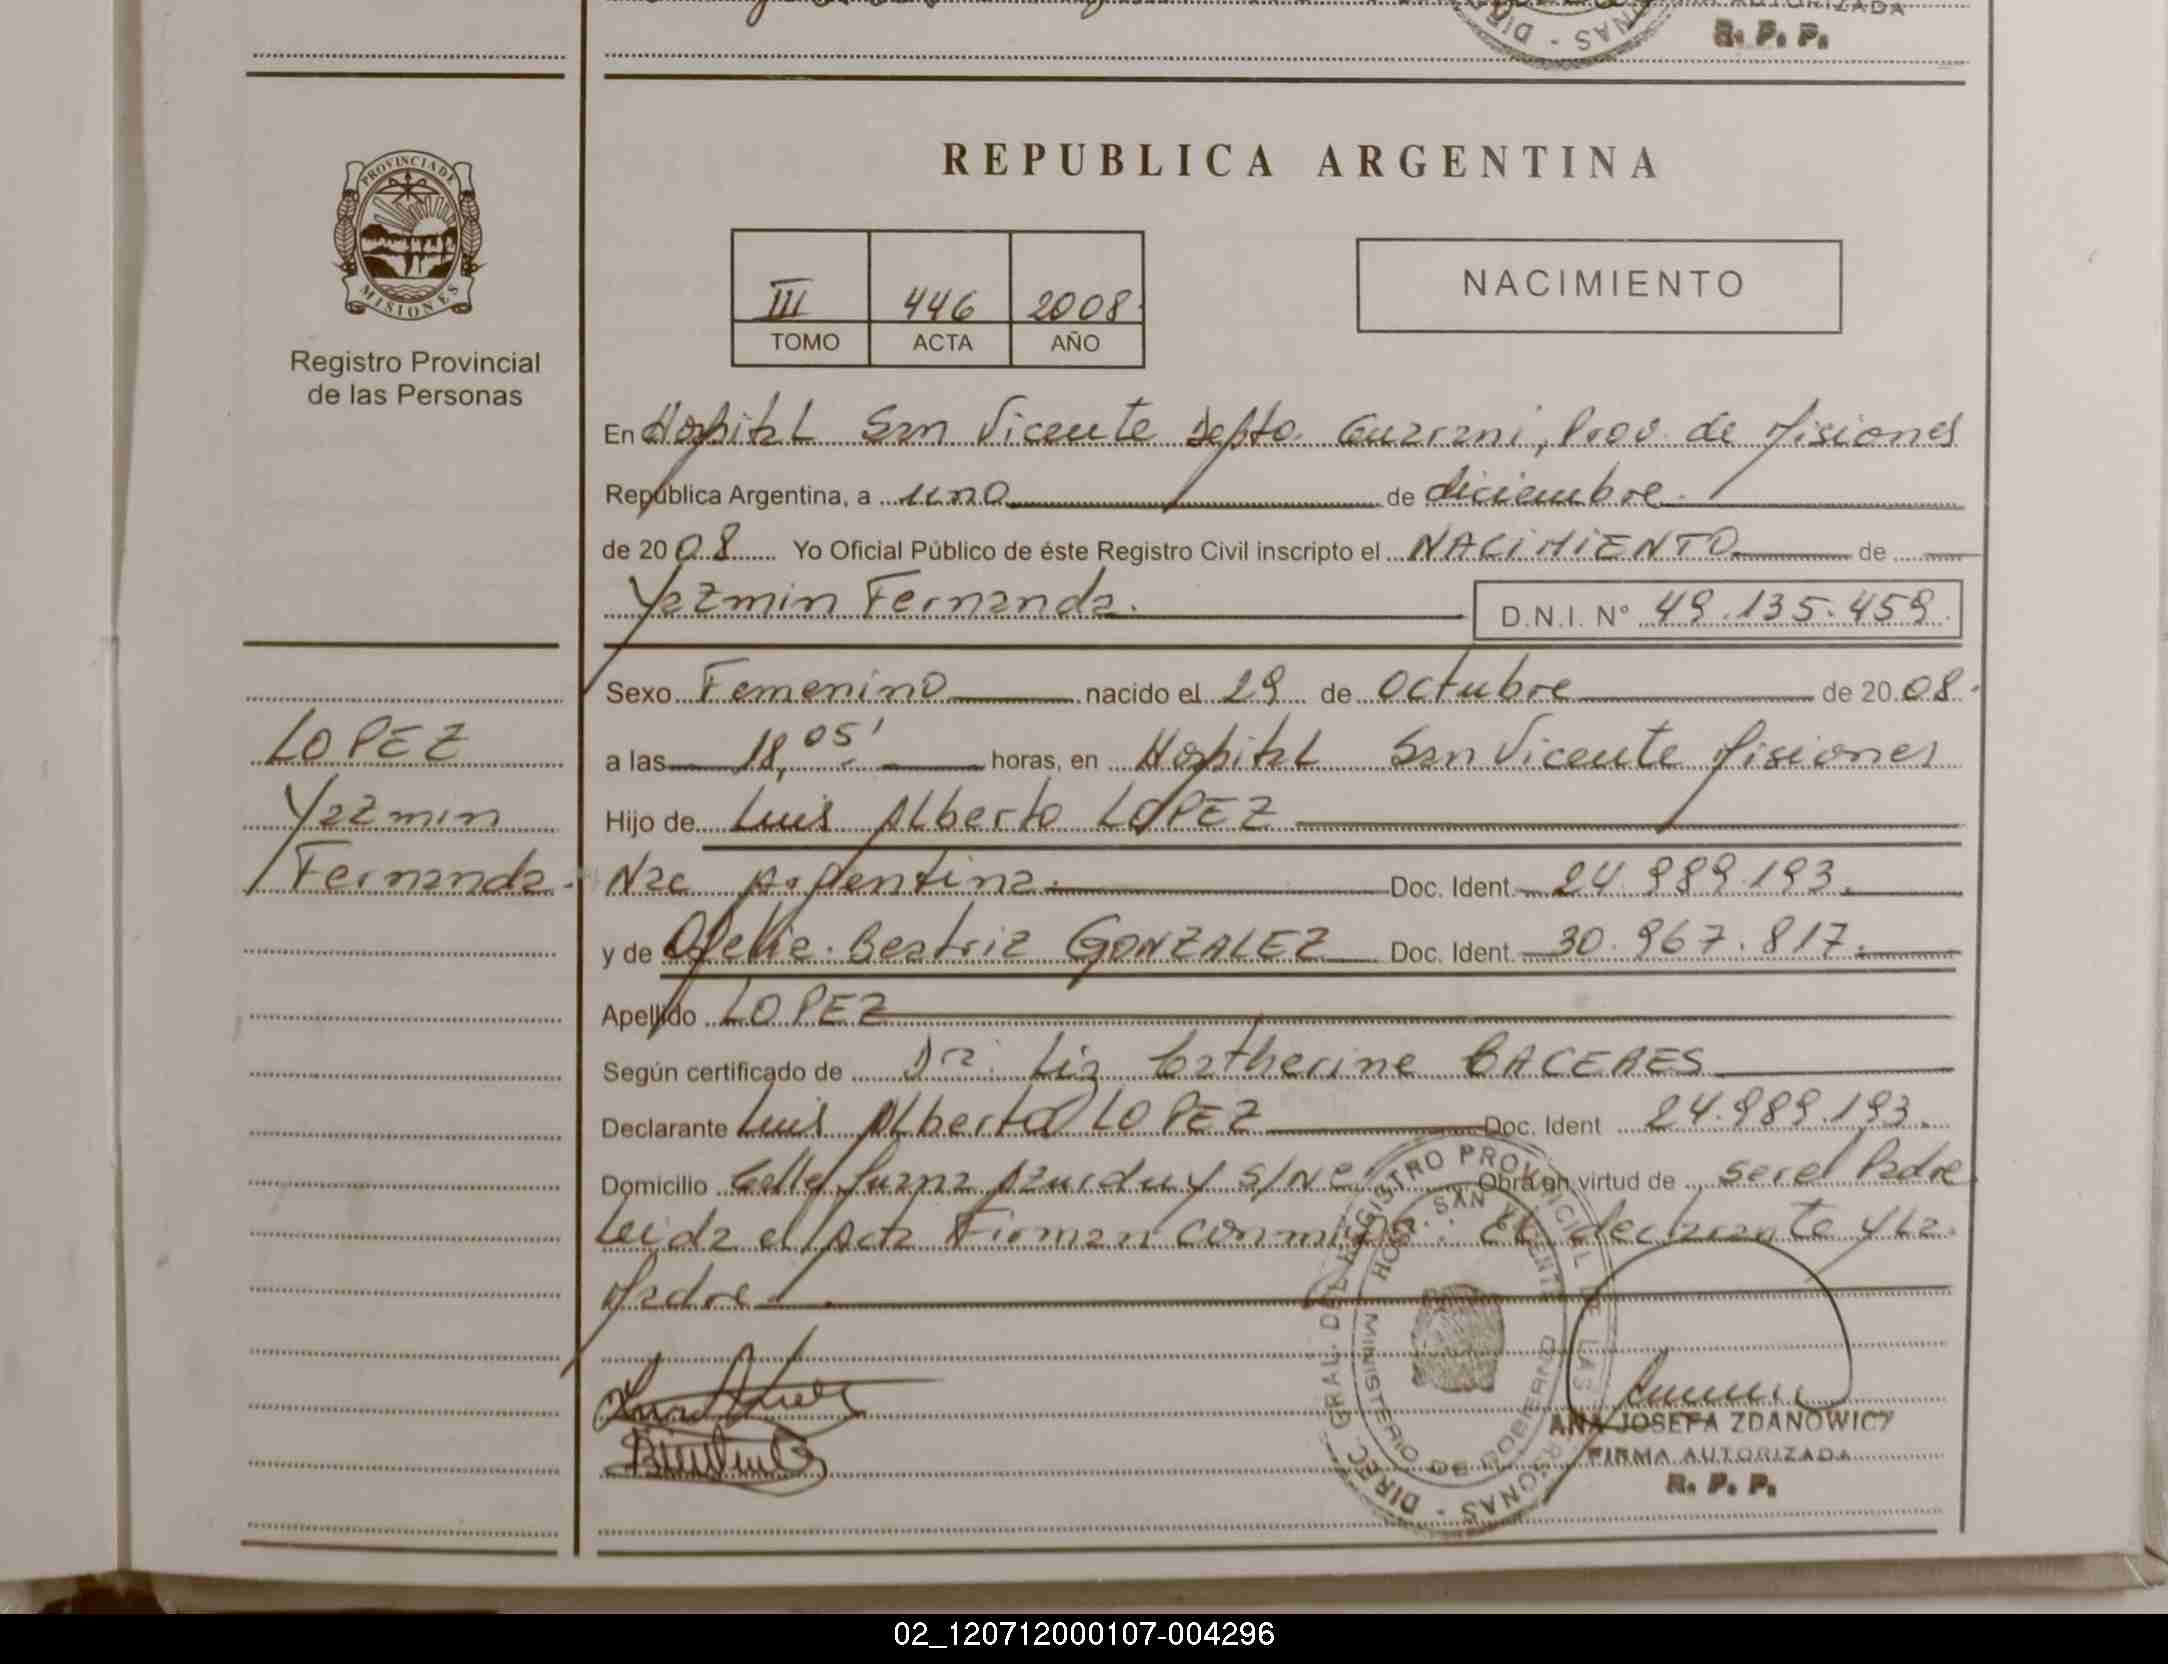 AUTORIZADA
R. P. P.
DIR - NAS
PROVINCIA DE
MISIONES
Registro Provincial
de las Personas
REPUBLICA ARGENTINA
III 446 2008
TOMO ACTA AÑO
NACIMIENTO
En Hospital San Vicente Depto. Guarani, Prov. de Misiones
República Argentina, a uno de diciembre
de 2008 Yo Oficial Público de éste Registro Civil inscripto el NACIMIENTO de
Yazmin Fernanda.
D.N.I. N° 49.135.459.
Sexo Femenino nacido el 29 de Octubre de 2008.
LOPEZ
Yazmin
Fernanda.
a las 18,05' horas, en Hospital San Vicente Misiones
Hijo de Luis Alberto LOPEZ
Nac Argentina. Doc. Ident. 24.989.193.
y de Ofelia Beatriz GONZALEZ Doc. Ident. 30.967.817.
Apellido LOPEZ
Según certificado de Dra. Liz Catherine CACERES
Declarante Luis Alberto LOPEZ Doc. Ident 24.989.193.
Domicilio Calle Juana Azurduy S/N° Obra en virtud de ser el Padre
Leida el Acta Firman conmigo: El declarante y La
Madre
DIREC. GRAL. DEL REGISTRO PROVINCIAL DE LAS PERSONAS -
HOSP. SAN VICENTE
MINISTERIO DE GOBIERNO
ANA JOSEFA ZDANOWICZ
FIRMA AUTORIZADA
R. P. P.
02_120712000107-004296